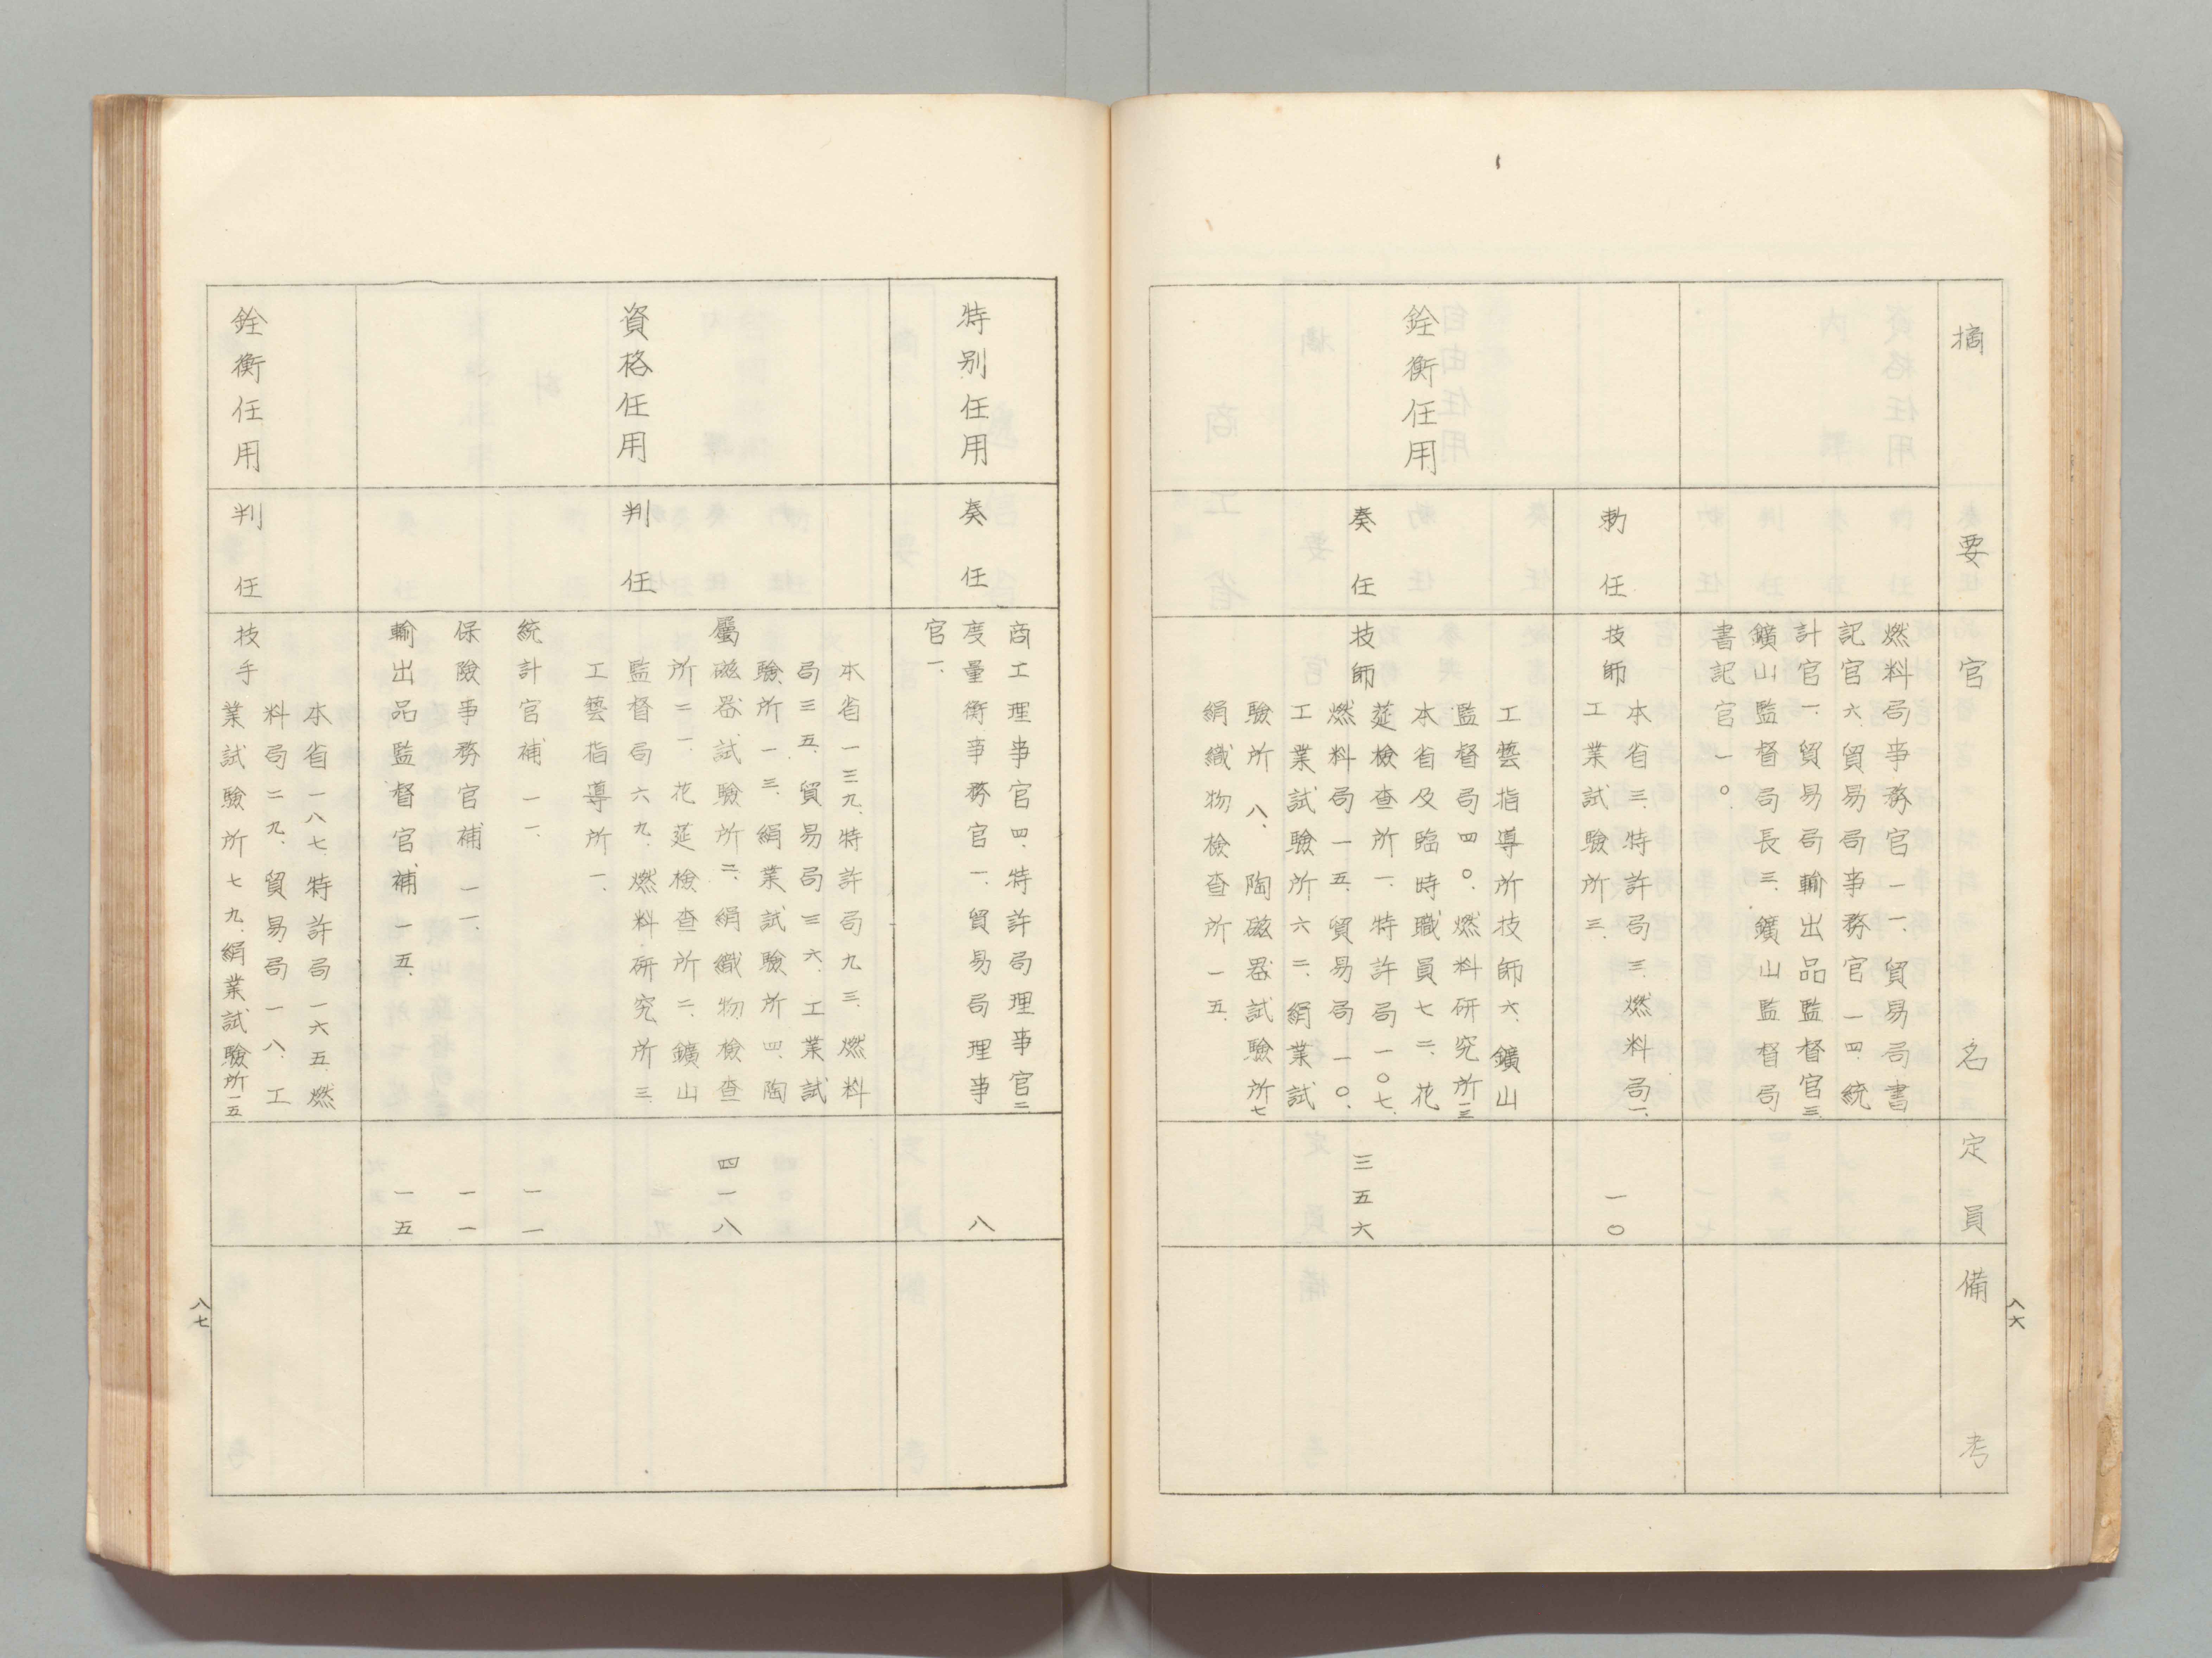 摘要
官名
定員
備考
燃料局事務官一一、貿易局書
記官六、貿易局事務官一四、統
計官一、貿易局輸出品監督官三、
鑛山監督局長三、鑛山監督局
書記官一〇、
銓衡任用
勅任
技師
本省三、特許局三、燃料局一、
工業試驗所三、
一〇
奏任
技師
工藝指導所技師六、鑛山
監督局四〇、燃料研究所一三、
本省及臨時職員七二、花
莚檢查所一、特許局一〇七、
燃料局一五、貿易局一〇、
工業試驗所六二、絹業試
驗所八、陶磁器試驗所七
絹織物檢查所一五、
三五六
八六
特別任用
奏任
商工理事官四、特許局理事官二
度量衡事務官一、貿易局理事
官一、
八
資格任用
判任
屬
本省一三九、特許局九三、燃料
局三五、貿易局三六、工業試
驗所一三、絹業試驗所四、陶
磁器試驗所二、絹織物檢查
所二一、花莚檢查所二、鑛山
監督局六九、燃料研究所三、
工藝指導所一、
四一八
統計官補一一、
一一
保險事務官補一一、
一一
輸出品監督官補一五、
一五
銓衡任用
判任
技手
本省一八七、特許局一六五、燃
料局二九、貿易局一八、工
業試驗所七九、絹業試驗所一五
八七